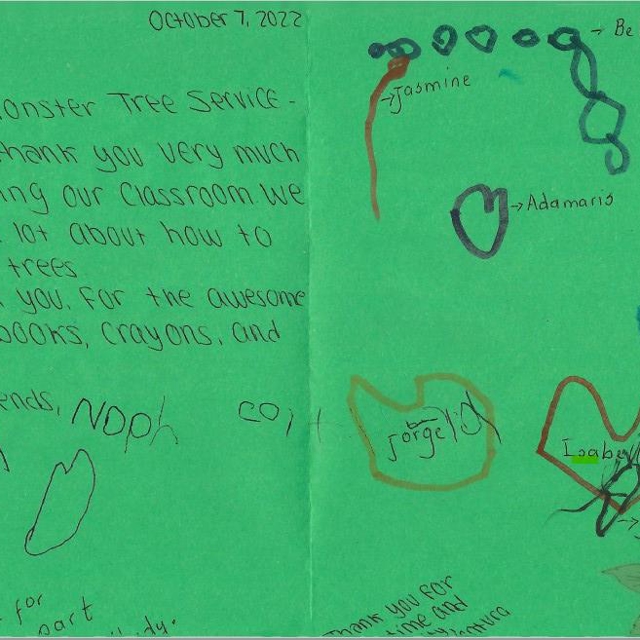 October 7, 2022
onster Tree Service -
hank you very much
ing our Classroom. We
lot about how to
trees
you. For the awesome
books, crayons, and
ends,
Noph
for
part
Be
Jasmine
Adamaris
Jorge
Isabe
Thank you for
time and